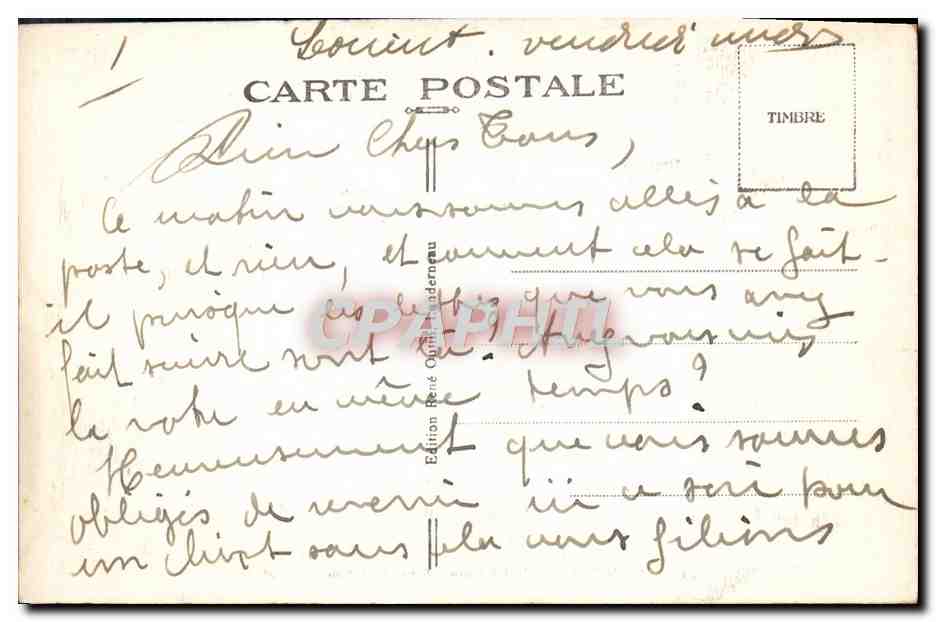 1
Lorient. vendredi
CARTE POSTALE
TIMBRE
Bien Chers Tous,
Ce matin nous sommes allés à la
poste, et rien, et comment cela se fait-
il puisque les lettres que vous avez
fait suivre sont là. Avez vous mis
la votre en même temps?
Heureusement que nous sommes
obligés de revenir ici ce soir pour
un sans cela nous filions
Edition René Landerneau
CPAPHIL